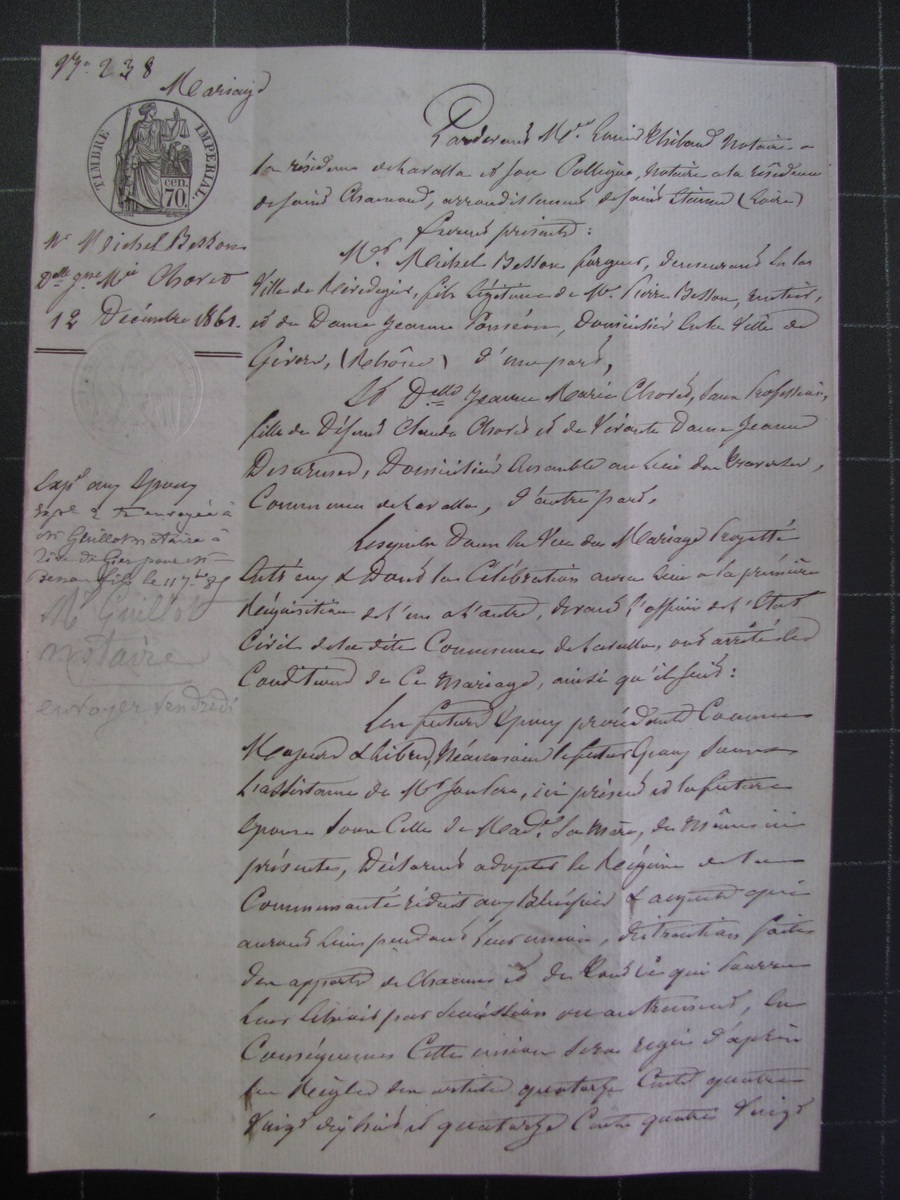 N° 238
Mariage
TIMBRE IMPERIAL
cen.
70.
Mr Michel Besson
Delle Jne Mie Choret
12 Décembre 1861.
Expé aux Epoux
envoyée à
Mr Guillot notaire à
Rive de Gier pour Mr
Besson fils le 11
Mr Guillot
notaire
envoyer vendredi
Pardevant Me Louis Thibaud Notaire a
la résidence de Lavalla et Notaire a la résidence
de Saint Chamond, arrondissement de Saint Etienne (Loire)
Furent présents :
Mr Michel Besson forgeur, demeurant en la
Ville de fils légitime de Mr Pierre Besson, rentier,
et de Dame Jeanne Domiciliés en la Ville de
Givors, (Rhône) d'une part,
Et Delle Jeanne Marie Choret, sans Profession,
fille de Défunt Claude Choret et de Vivante Dame Jeanne
Domiciliées Ensemble au Lieu de
Commune de Lavalla, d'autre part.
Lesquels Dans la Vue du Mariage Projetté
Entr'eux & Dont la Célébration aura Lieu a la première
Réquisition de l'un a l'autre, devant l'officier de l'Etat
Civil de la dite Commune de Lavalla, ont arrêté les
Conditions de Ce Mariage, ainsi qu'il suit :
Les futurs Epoux procédant Comme
Majeurs & Libres, Néanmoins le futur Epoux sous
L'assistance de Mr son Père, ici présent et la future
Epouse sous Celle de Made Sa Mère, de Même ici
présente, Déclarent adopter le Régime de la
Communauté réduite aux Bénéfices & acquets qui
auront Lieu pendant leur union, distraction faite
des apports de Chacun et de tout Ce qui pourra
Leur Echoir par Succession ou autrement, En
Conséquence Cette union Sera regie d'après
les Règles des articles quatorze Cent quatre
Vingt dix huit et quatorze Cents quatre Vingt